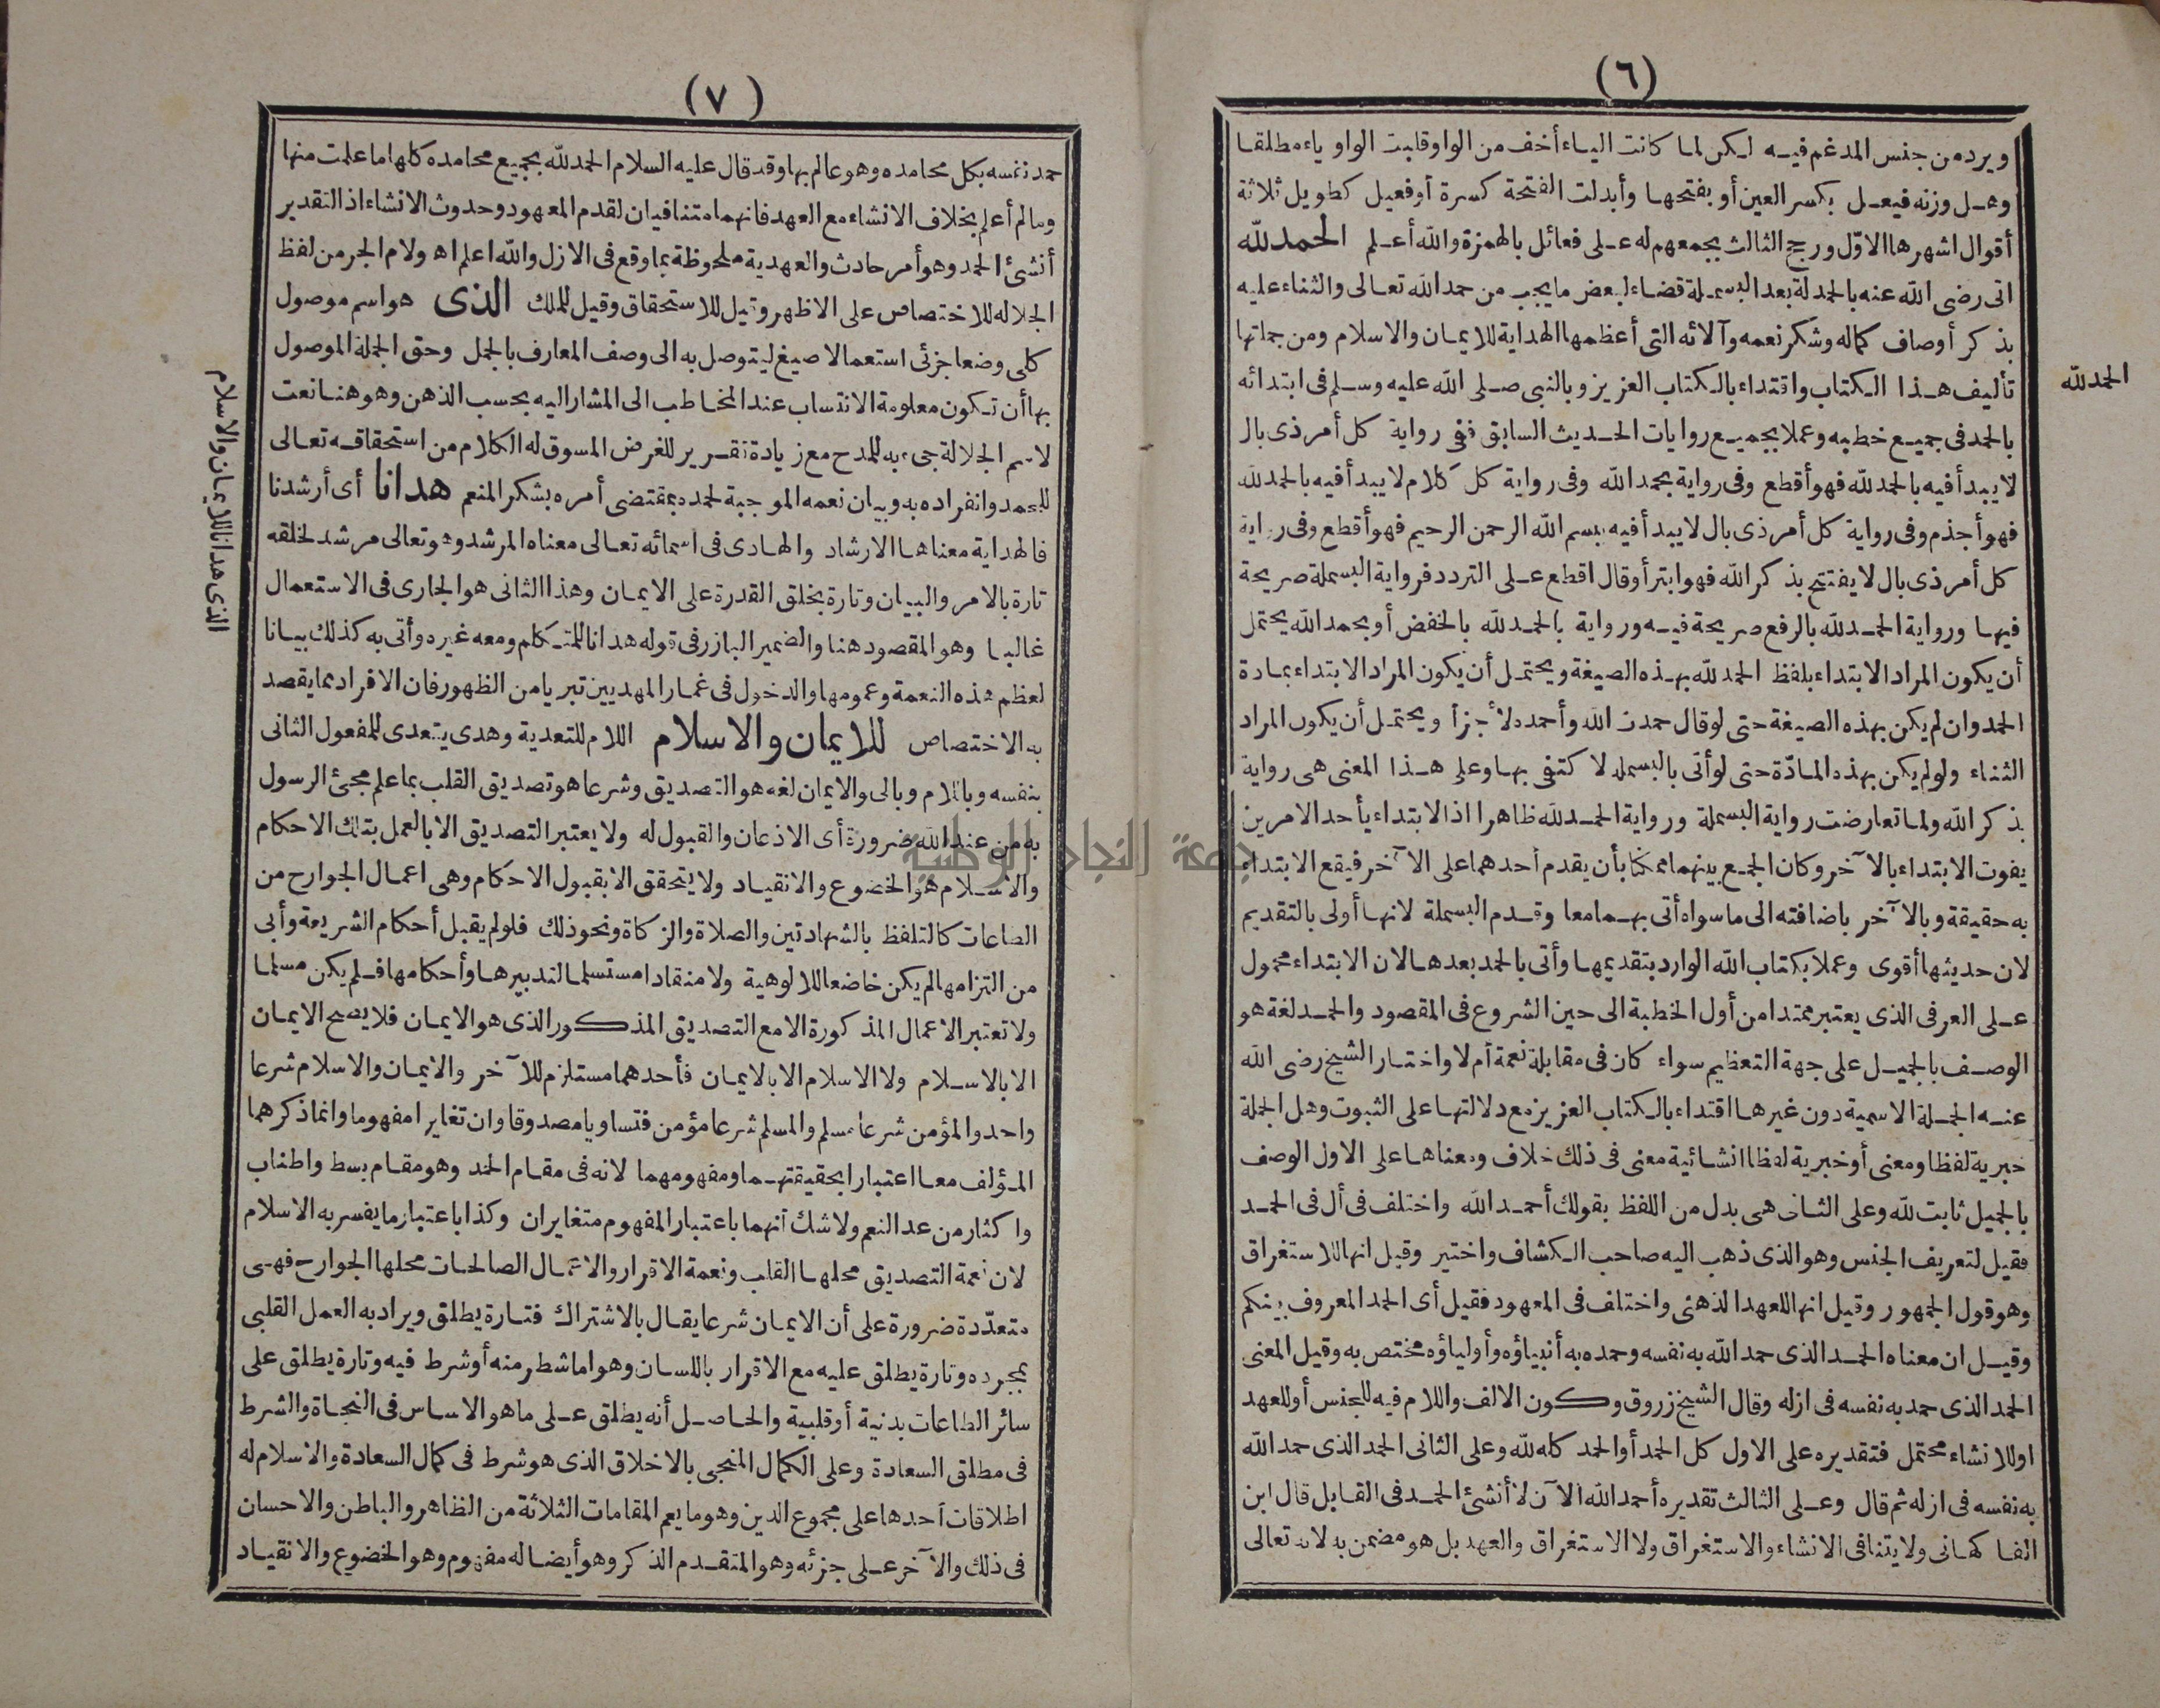 (٦)
ويرد من جنس المدغم فيه لكن لما كانت الياء أخف من الواو قلبت الواو ياء مطلقا
وهل وزنه فيعل بكسر العين أو بفتحها وأبدلت الفتحة كسرة أو فعيل كطويل ثلاثة
أقوال اشهرها الاوّل ورجح الثالث بجمعهم له على فعائل بالهمزة والله أعلم الحمد لله
اتى رضى الله عنه بالحمدلة بعد البسملة قضاء لبعض ما يجب من حمد الله تعالى والثناء عليه
بذكر أوصاف كماله وشكر نعمه وآلائه التى أعظمها الهداية للايمان والاسلام ومن جملتها
تأليف هذا الكتاب واقتداء بالكتاب العزيز وبالنبى صلى الله عليه وسلم فى ابتدائه
بالحمد فى جميع خطبه وعملا بجميع روايات الحديث السابق ففى رواية كل أمر ذى بال
لا يبدأ فيه بالحمد لله فهو أقطع وفى رواية بحمد الله وفى رواية كل كلام لا يبدأ فيه بالحمد لله
فهو أجذم وفى رواية كل أمر ذى بال لا يبدأ فيه ببسم الله الرحمن الرحيم فهو أقطع وفى رواية
كل أمر ذى بال لا يفتتح بذكر الله فهو ابتر أو قال اقطع على التردد فرواية البسملة صريحة
فيها ورواية الحمد لله بالرفع صريحة فيه ورواية بالحمد لله بالخفض أو بحمد الله يحتمل
أن يكون المراد الابتداء بلفظ الحمد لله بهذه الصيغة ويحتمل أن يكون المراد الابتداء بمادة
الحمد وان لم يكن بهذه الصيغة حتى لو قال حمدت الله وأحمده لأجزأ ويحتمل أن يكون المراد
الثناء ولو لم يكن بهذه المادّة حتى لو أتى بالبسملة لاكتفى بها وعلى هذا المعنى هى رواية
بذكر الله ولما تعارضت رواية البسملة ورواية الحمد لله ظاهرا اذ الابتداء بأحد الامرين
يفوت الابتداء بالآخر وكان الجمع بينهما ممكنا بأن يقدم أحدهما على الآخر فيقع الابتداء
به حقيقة وبالآخر باضافته الى ما سواه أتى بهما معا وقدم البسملة لانها أولى بالتقديم
لان حديثها أقوى وعملا بكتاب الله الوارد بتقديمها وأتى بالحمد بعدها لان الابتداء محمول
على العرفى الذى يعتبر ممتدا من أول الخطبة الى حين الشروع فى المقصود والحمد لغة هو
الوصف بالجميل على جهة التعظيم سواء كان فى مقابلة نعمة أم لا واختار الشيخ رضى الله
عنه الجملة الاسمية دون غيرها اقتداء بالكتاب العزيز مع دلالتها على الثبوت وهل الجملة
خبرية لفظا ومعنى أو خبرية لفظا انشائية معنى فى ذلك خلاف ومعناها على الاول الوصف
بالجميل ثابت لله وعلى الثانى هى بدل من اللفظ بقولك أحمد الله واختلف فى أل فى الحمد
فقيل لتعريف الجنس وهو الذى ذهب اليه صاحب الكشاف واختير وقيل انها للاستغراق
وهو قول الجمهور وقيل انها للعهد الذهنى واختلف فى المعهود فقيل أى الحمد المعروف بينكم
وقيل ان معناه الحمد الذى حمد الله به نفسه وحمده به أنبياؤه وأولياؤه مختص به وقيل المعنى
الحمد الذى حمد به نفسه فى ازله وقال الشيخ زروق وكون الالف واللام فيه للجنس أو للعهد
او للانشاء محتمل فتقديره على الاول كل الحمد أو الحمد كله لله وعلى الثانى الحمد الذى حمد الله
به نفسه فى ازله ثم قال وعلى الثالث تقديره أحمد الله الآن لأ أنشئ الحمد فى القابل قال ابن
الفاكهانى ولا يتنافى الانشاء والاستغراق ولا الاستغراق والعهد بل هو مضمن به لانه تعالى
الحمد لله
(٧)
حمد نفسه بكل محامده وهو عالم بها وقد قال عليه السلام الحمد لله بجميع محامده كلها ما علمت منها
وما لم أعلم بخلاف الانشاء مع العهد فانهما متنافيان لقدم المعهود وحدوث الانشاء اذ التقدير
أنشئ الحمد وهو أمر حادث والعهدية ملحوظة بما وقع فى الازل والله اعلم اه ولام الجر من لفظ
الجلاله للاختصاص على الاظهر وقيل للاستحقاق وقيل للملك الذى هو اسم موصول
كلى وضعا جزئى استعمالا صيغ ليتوصل به الى وصف المعارف بالجمل وحق الجملة الموصول
بها أن تكون معلومة الانتساب عند المخاطب الى المشار اليه بحسب الذهن وهو هنا نعت
لاسم الجلالة جىء به للمدح مع زيادة تقرير للغرض المسوق له الكلام من استحقاقه تعالى
للحمد وانفراده به وبيان نعمه الموجبة لحمده بمقتضى أمره بشكر المنعم هدانا أى أرشدنا
فالهداية معناها الارشاد والهادى فى اسمائه تعالى معناه المرشد وهو تعالى مرشد لخلقه
تارة بالامر والبيان وتارة بخلق القدرة على الايمان وهذا الثانى هو الجارى فى الاستعمال
غالبا وهو المقصود هنا والضمير البارز فى قوله هدانا للمتكلم ومعه غيره وأتى به كذلك بيانا
لعظم هذه النعمة وعمومها والدخول فى غمار المهديين تبريا من الظهور فان الافراد مما يقصد
به الاختصاص للايمان والاسلام اللام للتعدية وهدى يتعدى للمفعول الثانى
بنفسه وباللام وبالى والايمان لغة هو التصديق وشرعا هو تصديق القلب بما علم مجئ الرسول
به من عند الله ضرورة أى الاذعان والقبول له ولا يعتبر التصديق الا بالعمل بتلك الاحكام
والاسلام هو الخضوع والانقياد ولا يتحقق الا بقبول الاحكام وهى اعمال الجوارح من
الطاعات كالتلفظ بالشهادتين والصلاة والزكاة ونحو ذلك فلو لم يقبل أحكام الشريعة وأبى
من التزامها لم يكن خاضعا للالوهية ولا منقادا مستسلما لتدبيرها وأحكامها فلم يكن مسلما
ولا تعتبر الاعمال المذكورة الا مع التصديق المذكور الذى هو الايمان فلا يصح الايمان
الا بالاسلام ولا الاسلام الا بالايمان فأحدهما مستلزم للآخر والايمان والاسلام شرعا
واحد والمؤمن شرعا مسلم والمسلم شرعا مؤمن فتساويا مصدوقا وان تغايرا مفهوما وانما ذكرهما
المؤلف معا اعتبارا بحقيقتهما ومفهومهما لانه فى مقام الحمد وهو مقام بسط واطناب
واكثار من عد النعم ولا شك أنهما باعتبار المفهوم متغايران وكذا باعتبار ما يفسر به الاسلام
لان نعمة التصديق محلها القلب ونعمة الاقرار والاعمال الصالحات محلها الجوارح فهى
متعدّدة ضرورة على أن الايمان شرعا يقال بالاشتراك فتارة يطلق ويراد به العمل القلبى
بمجرده وتارة يطلق عليه مع الاقرار باللسان وهو اما شطر منه أو شرط فيه وتارة يطلق على
سائر الطاعات بدنية أو قلبية والحاصل أنه يطلق على ما هو الاساس فى النجاة والشرط
فى مطلق السعادة وعلى الكمال المنجى بالاخلاق الذى هو شرط فى كمال السعادة والاسلام له
اطلاقات أحدها على مجموع الدين وهو ما يعم المقامات الثلاثة من الظاهر والباطن والاحسان
فى ذلك والآخر على جزئه وهو المتقدم الذكر وهو أيضا له مفهوم وهو الخضوع والانقياد
الذى هدانا للايمان والاسلام
جامعة النجاح الوطنية